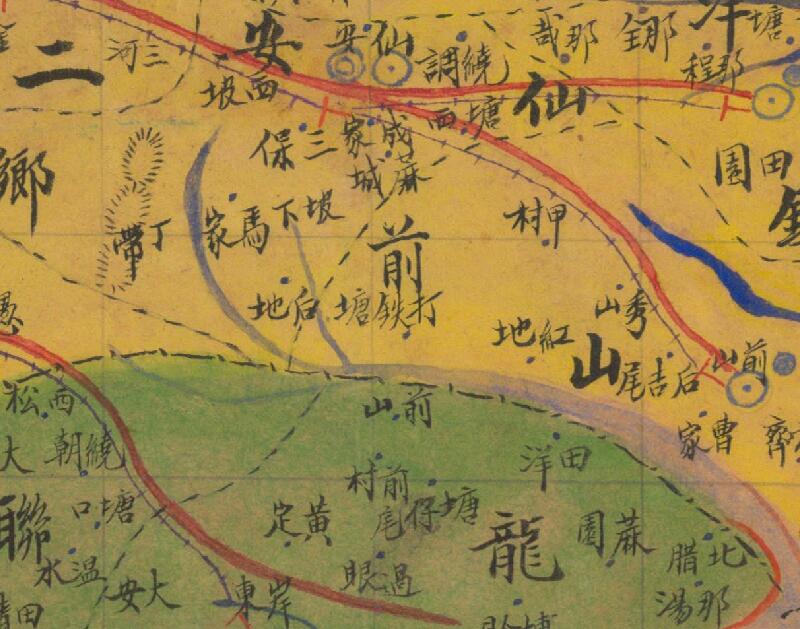 二
三河
安
西坡
仙安
繞調
那哉
那鄧
塘
那程
仙
西塘
三保
成家
蔴城
鄉
丁帶
馬家
坡下
前
甲村
田園
后地
打鉄塘
秀山
紅地
山
后吉尾
前山
曹家
齊
西松
繞朝
大
前山
田洋
塘口
聯
前村
塘仔尾
黃定
龍
蔴園
北腊
那湯
溫水
大安
過眼
岸東
田